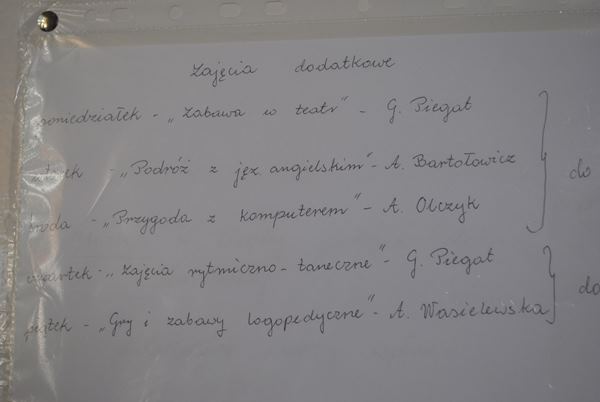 Zajęcia dodatkowe
poniedziałek - „Zabawa w teatr" - G. Piegat
wtorek - „Podróż z jęz. angielskim" - A. Bartołowicz
środa - „Przygoda z komputerem" - A. Olczyk
do
czwartek - „Zajęcia rytmiczno-taneczne" - G. Piegat
piątek - „Gry i zabawy logopedyczne" - A. Wasielewska
do